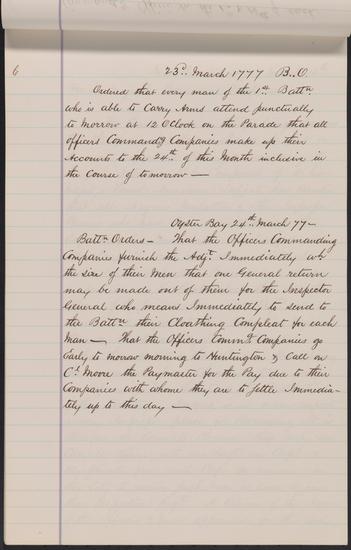 6
23d. March 1777 B..O.
Ordered that every man of the 1st. Battn.
who is able to Carry Arms attend punctually
to Morrow at 12 OClock on the Parade that all
officers Commandg Companies make up their
Accounts to the 24th. of this Month inclusive in
the Course of tomorrow —
Oyster Bay 24th. March 77 —
Battn. Orders — That the Officers Commanding
Companies furnish the Adjt. Immediately with
the size of their Men that one General return
may be made out of them for the Inspector
General who means Immediately to send to
the Battn. their Cloathing Compleat for each
Man — That the Officers Commg. Companies go
Early to morrow morning to Huntington & Call on
Ct. Moore the Paymaster for the Pay due to their
Companies with whome they are to settle Immedia-
tely up to this day —